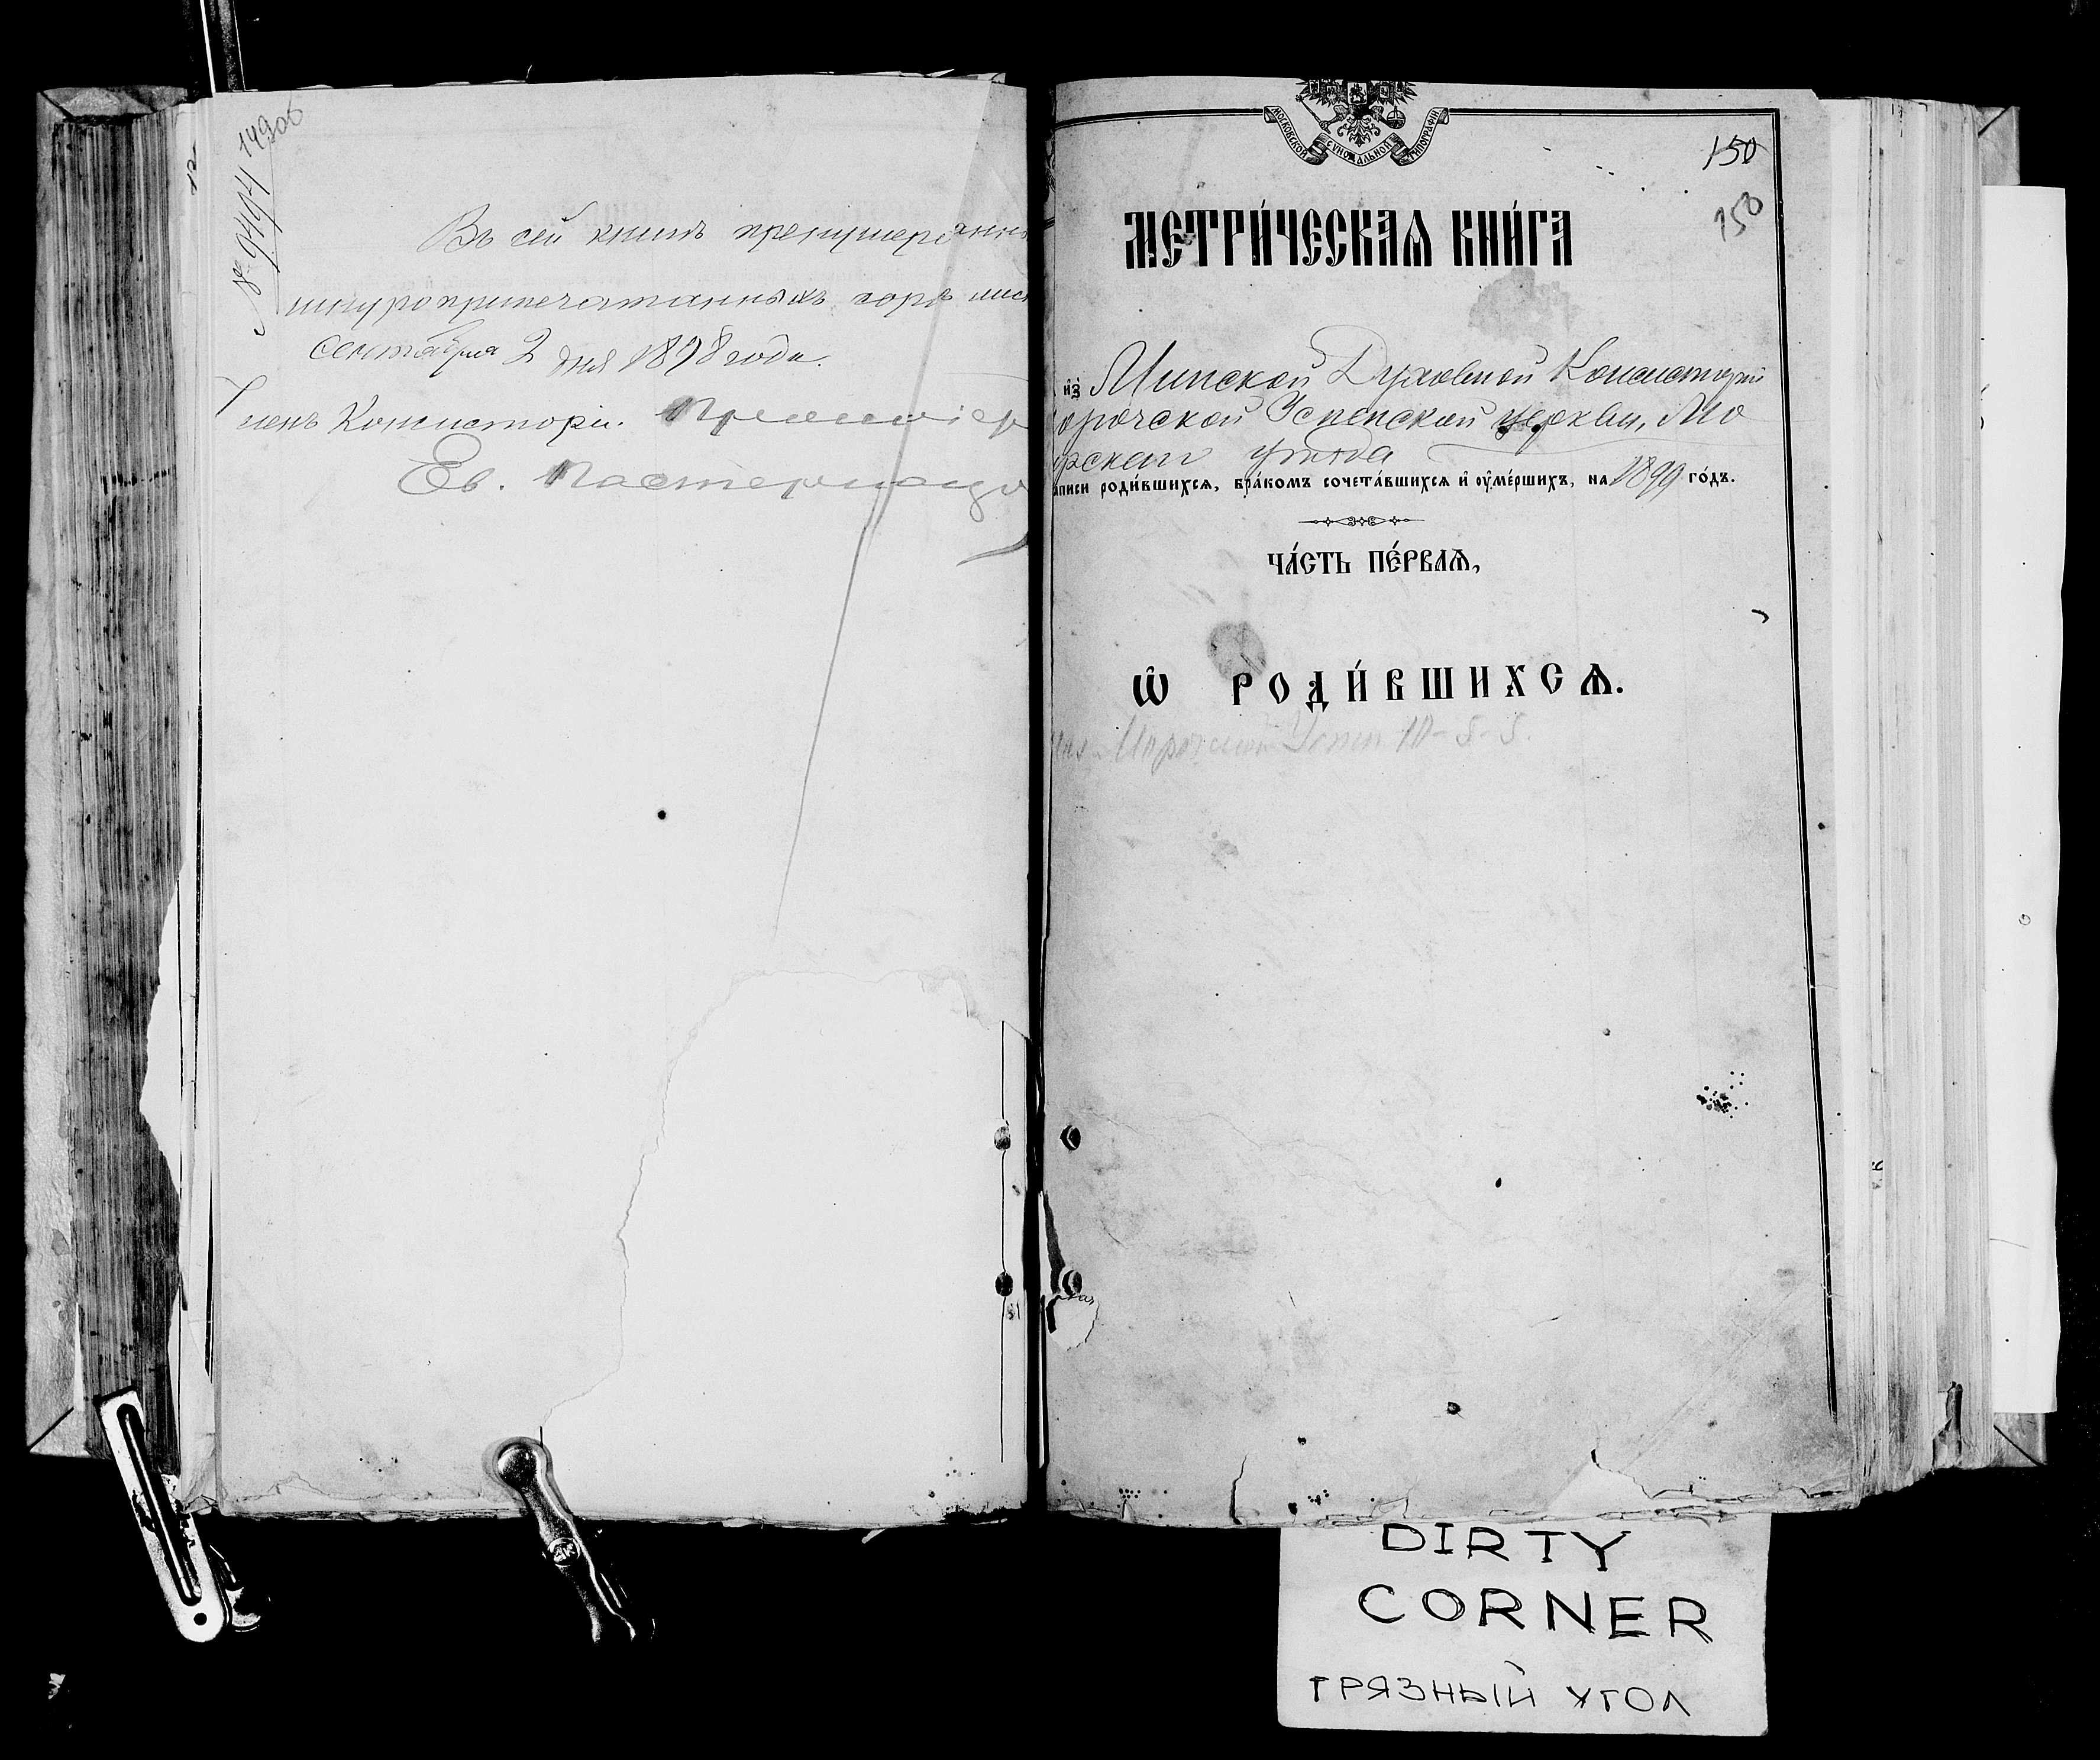 149 об
№ 9494
Въ сей книгѣ пренумерованныхъ
шнуроприпечатанныхъ сорокъ лис
Сентября 2 дня 1898 года.
Членъ Консисторіи.
Ев.
МОСКОВСКОЙ СѴНОДАЛЬНОЙ ТИПОГРАФІИ
150
150
МЕТРИ́ЧЕСКАѦ КНИ́ГА
и҆з̾ Минской Духовной Консисторіи
орочской Успенской церкви, Мо
рскаго уѣзда
аписи роди́вшихсѧ, бра́комъ сочета́вшихсѧ и҆ ᲂу҆ме́ршихъ, на 1899 го́дъ.
ЧА́СТЬ ПЕ́РВАѦ,
Ѽ РОДИ́ВШИХСѦ.
Успен 10-5-5.
DIRTY
CORNER
ГРЯЗНЫЙ УГОЛ